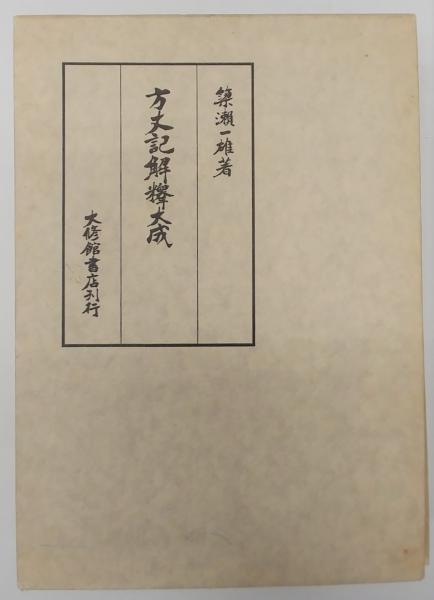 簗瀬一雄著
方丈記解釋大成
大修館書店刊行